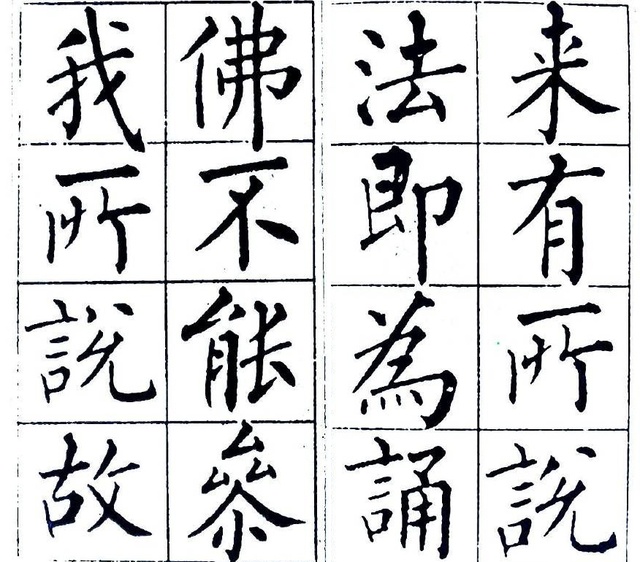 来有所說
法即為誦
佛不能叅
我所說故